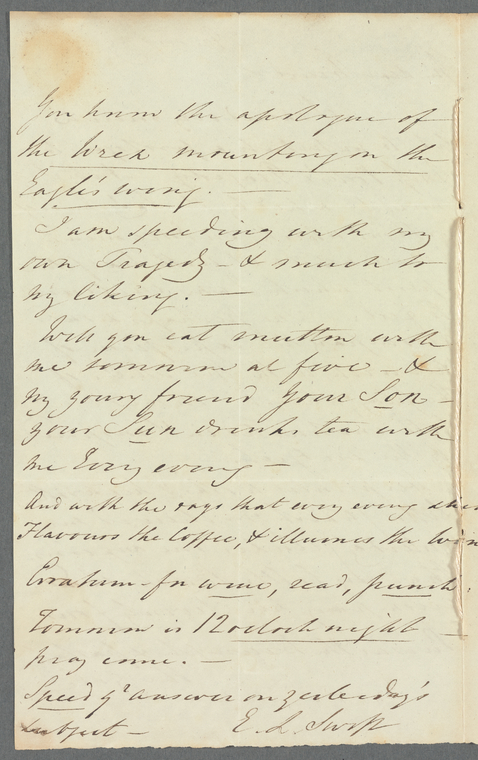 You know the apologue of
the Wren mounting on the
Eagle's wing. —
I am speeding with my
own Tragedy — & much to
my liking. —
Will you eat mutton with
me tomorrow at five — &
my young friend your Son —
your Sun drinks tea with
me Every evening —
And with the rays that every evening
Flavours the Coffee, & illumes the Wine
Erratum — for wine, read, punch.
Tomorrow is 12 oclock night —
pray come. —
Speed yr answer on yesterday's
subject — E. L. Swift